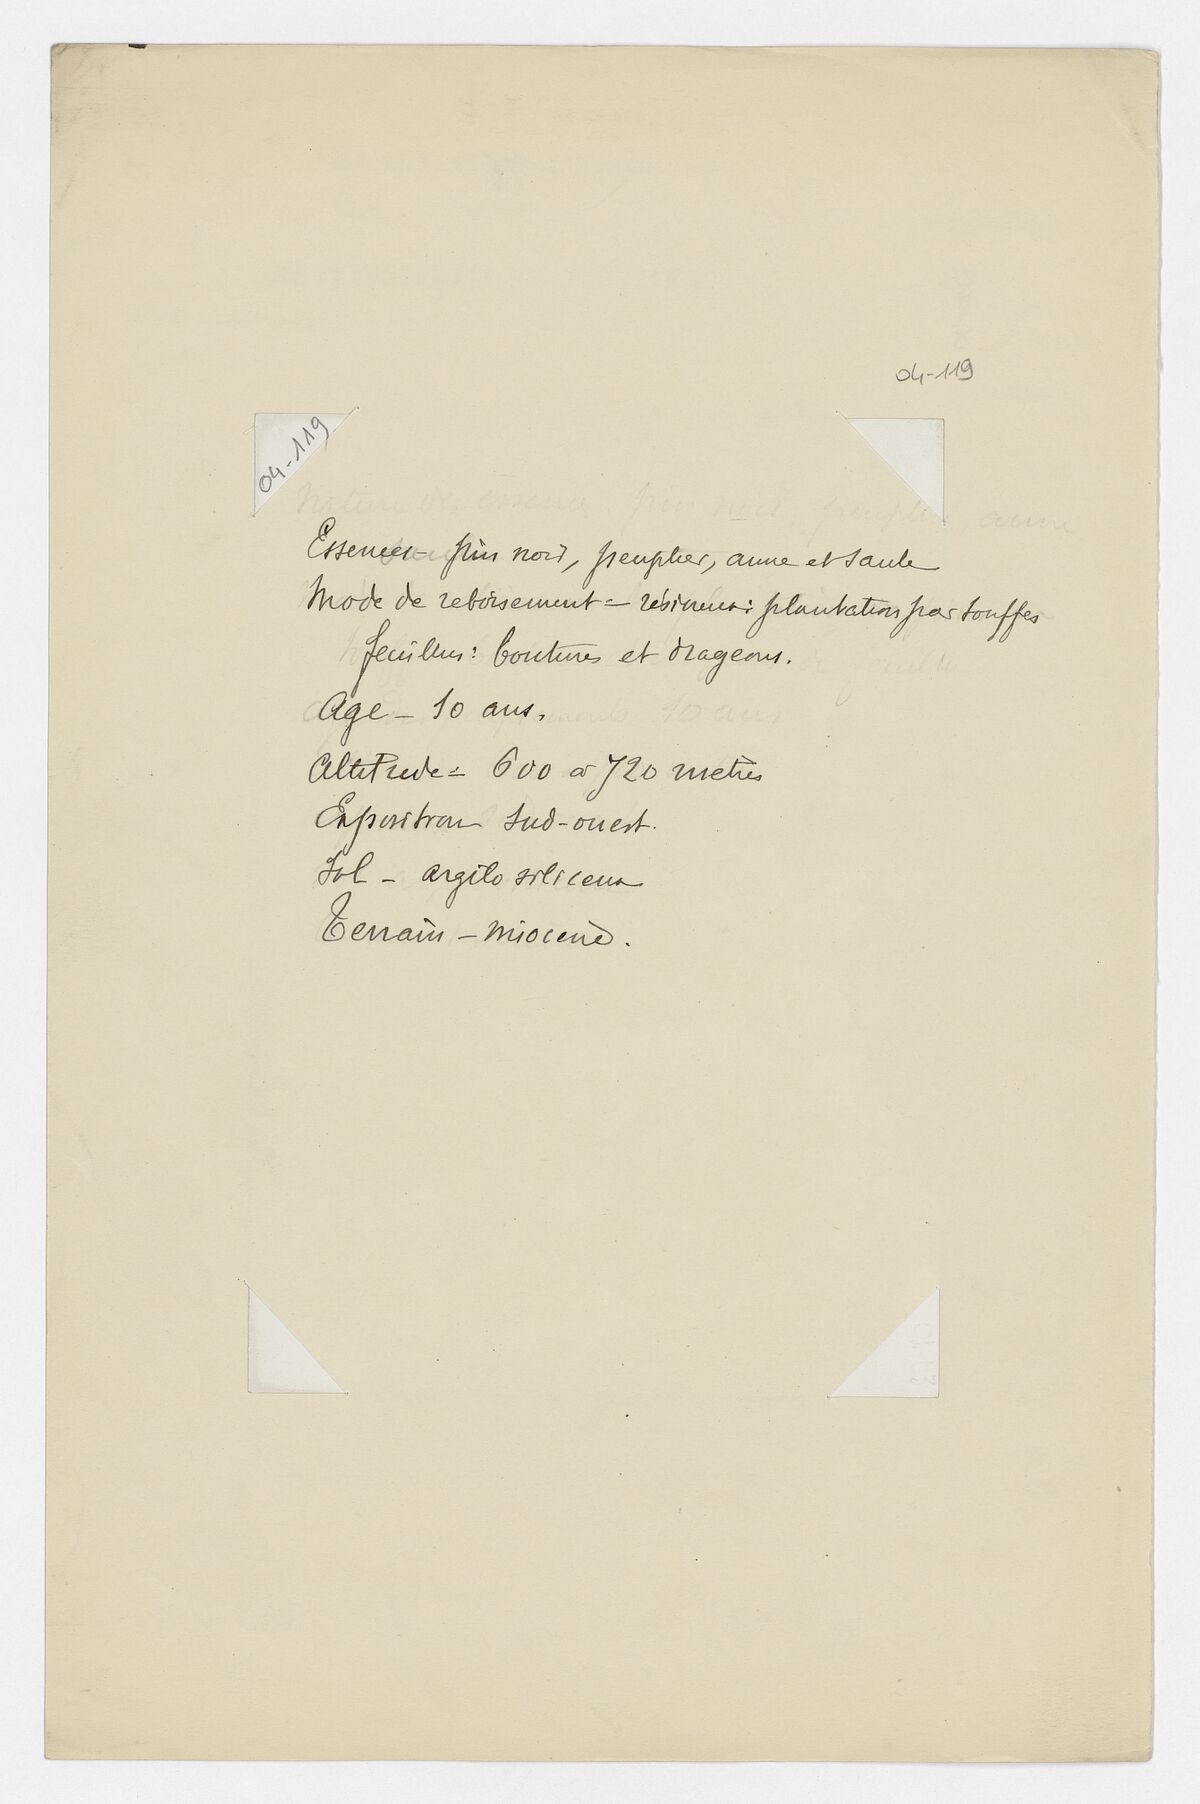 04-119
04-119
Nature des essences pin noir peuplier aune
Essences - pin noir, peuplier, aune et saule
Mode de reboisement = résineux: plantation par touffes
feuillus: boutures et drageons.
Age - 10 ans.
Altitude = 600 à 720 mètres
Exposition sud-ouest.
Sol - argilo siliceux
Terrain - miocène.